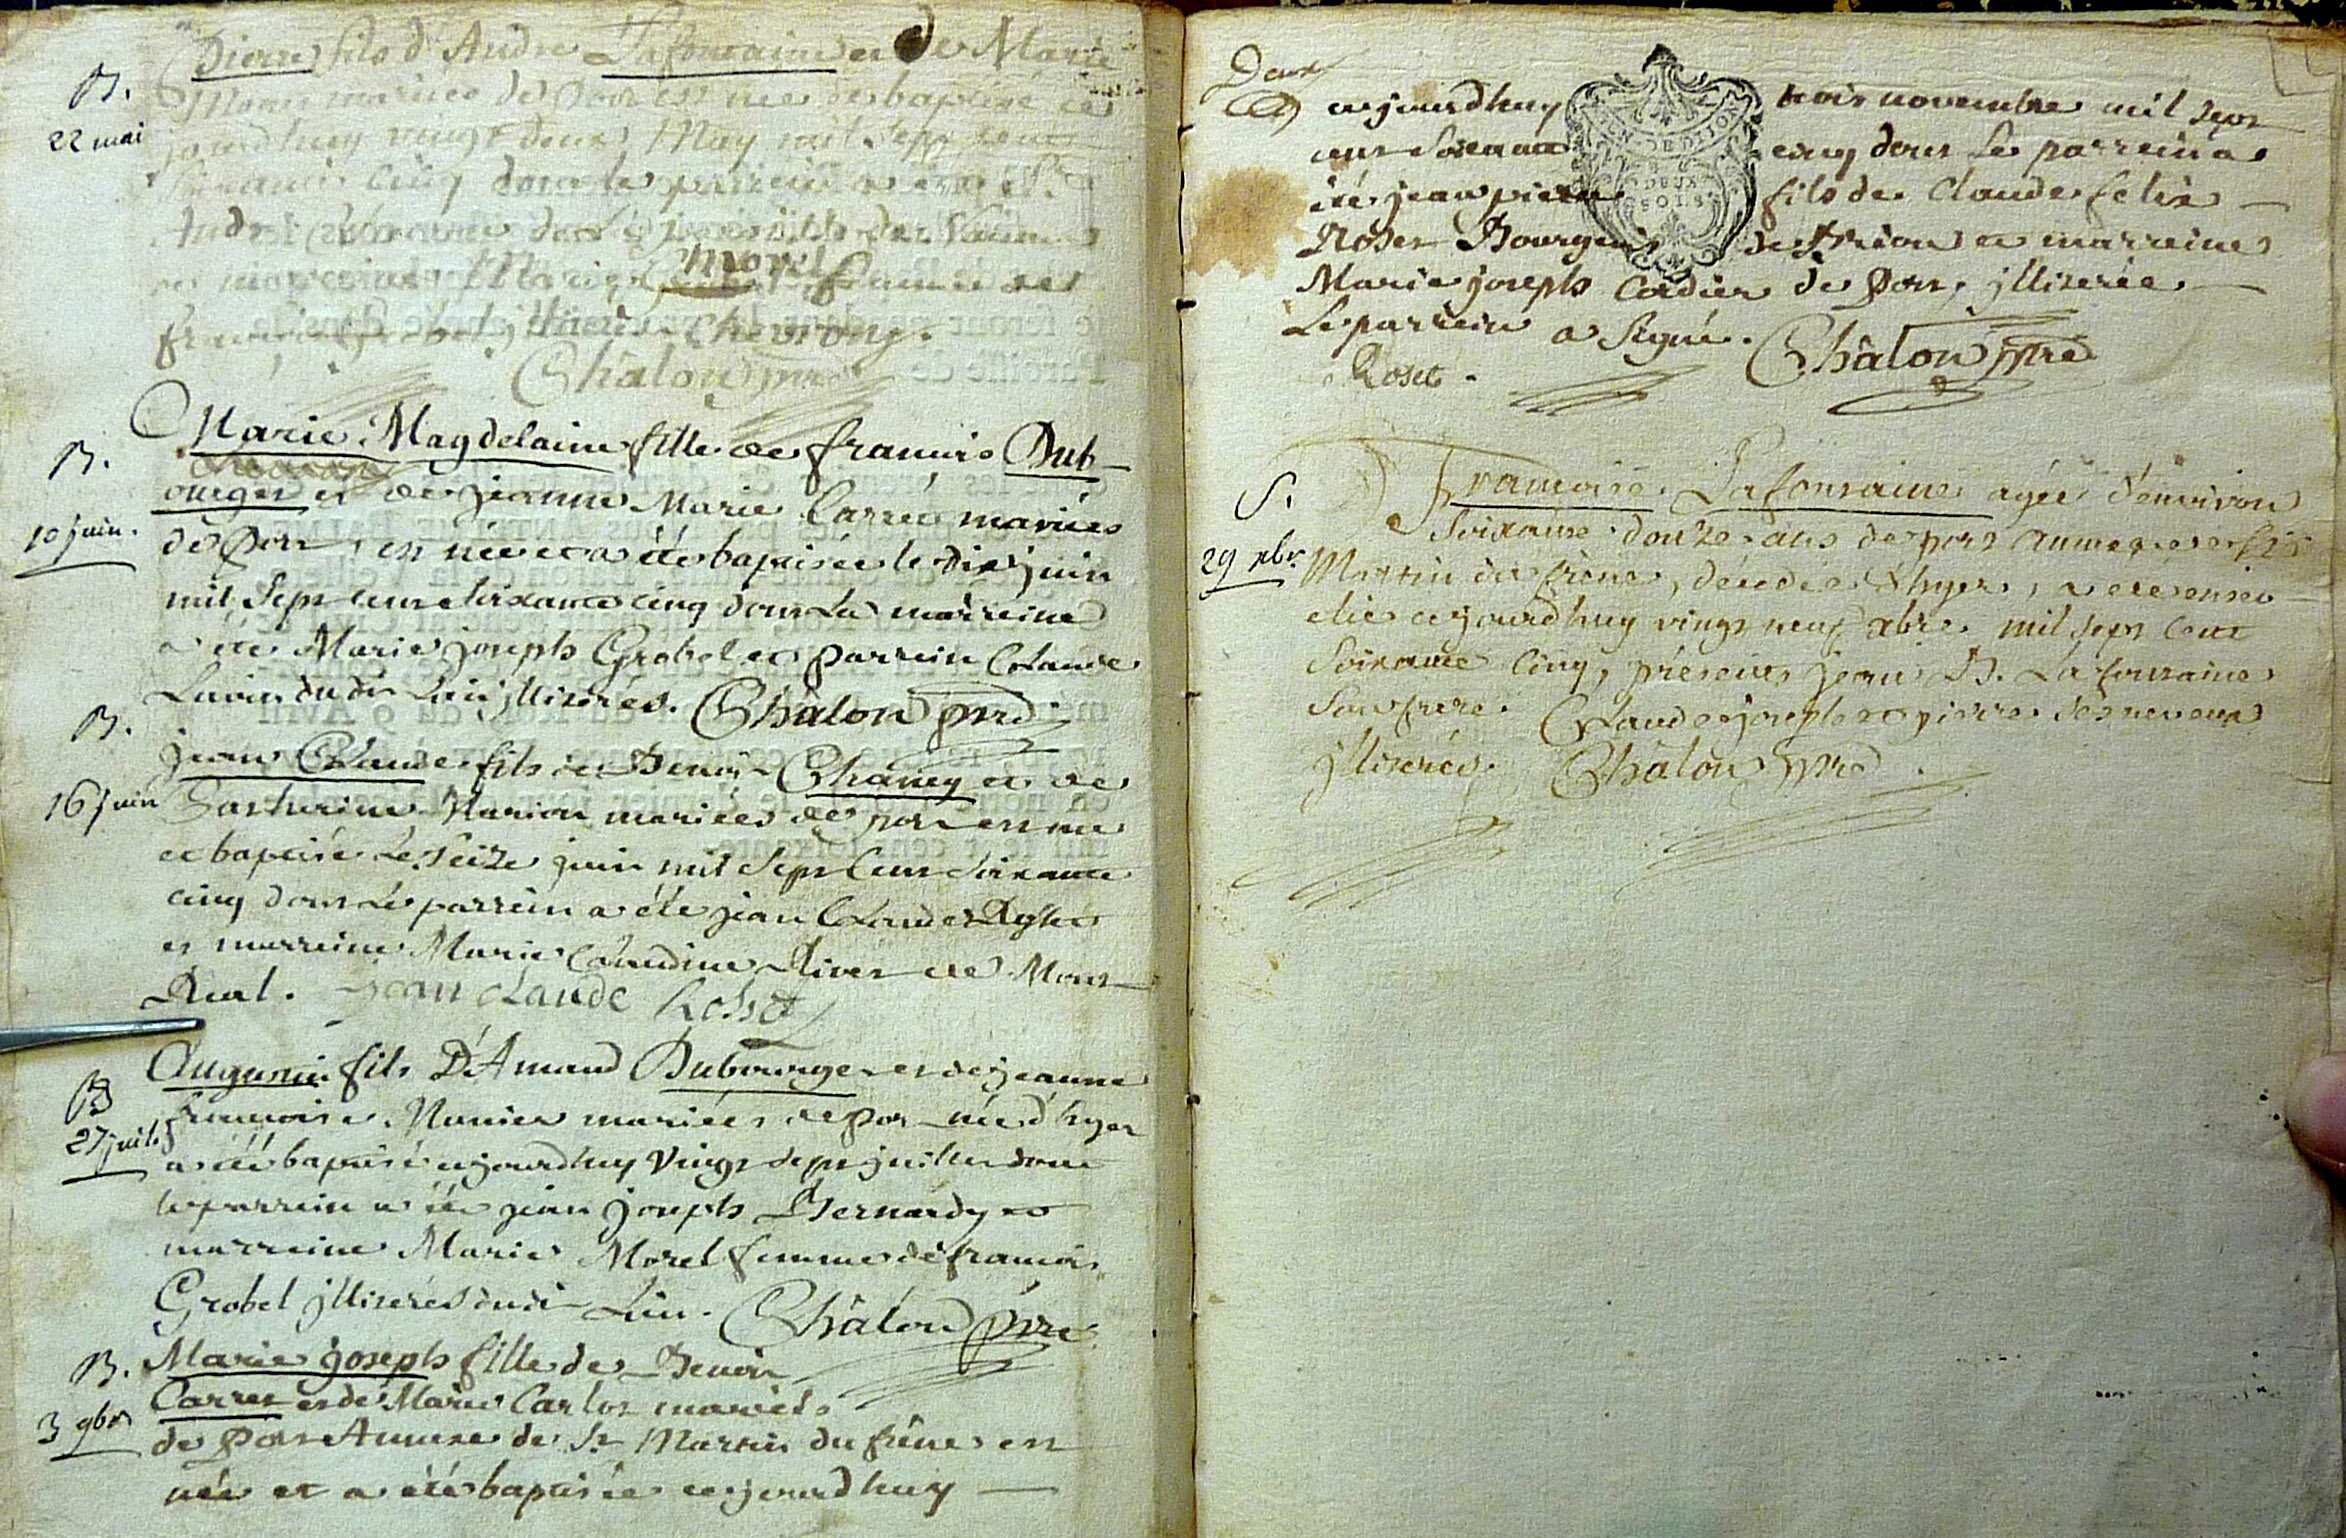 B.
22 mai
Pierre fils d'Andre Lafontaine et de Marie
mariées de Port est née et baptisé ce
jourdhuy vingt deux May mil sept cent
soixante cinq dont le parrein a été
André
Morel
et marreine Marie femme de
françois Chevrong.
Châlon ptre
B.
10 juin.
Marie Magdelaine fille de francois Dub-
ourger et de jeanne Marie Carrée mariées
de Port, est née et a été baptisée le dix juin
mil sept cent soixante cinq dont La marreine
a été Marie joseph Grobel et parrein Claude
du dit Lieu jlliterés. Châlon ptre
B.
16 juin
jean Claude fils de Benoit Chaney et de
Marion mariées de port est né
et baptisé Le seize juin mil sept cent soixante
cinq dont Le parrein a été jean Claude
et marreine Marie Claudine River de Mont-
Real. jean claude Rosset
B
27 juil.
fils D'Amand Dubourger et de jeanne
francoise Monier mariées de Port né d'hyer
a été baptisé cejourdhuy vingt sept juillet dont
le parrein a été jean joseph Bernardy et
marreine Marie Morel femme de francois
Grobel jlliterés dudit Lieu. Châlon ptre
B.
3 9bre
Marie joseph fille de Benoit
Carrer et de Marie Carlot mariées
de Port Annexe de St Martin du frêne est
née et a été baptisée cejourdhuy
Deux
cejourdhuy trois novembre mil sept
cent soixante cinq dont Le parrein a
été jean pierre fils de Claude felix
Roset Bourgeois de Brion et marreine
Marie joseph Cordier de Port, jlliterée
Le parrein a signé. Châlon ptre
Roset.
GEN. DE DIJON
DEUX
SOLS
S.
29 xbre
Francoise Lafontaine agée d'environ
soixante douze ans de port annexe de St
Martin du frêne, décédée d'hyer, a été ensev-
elie cejourdhuy vingt neuf xbre mil sept cent
soixante cinq, présents jean B. Lafontaine
son frere. Claude joseph et pierre ses neveux
jlliterés. Châlon ptre.